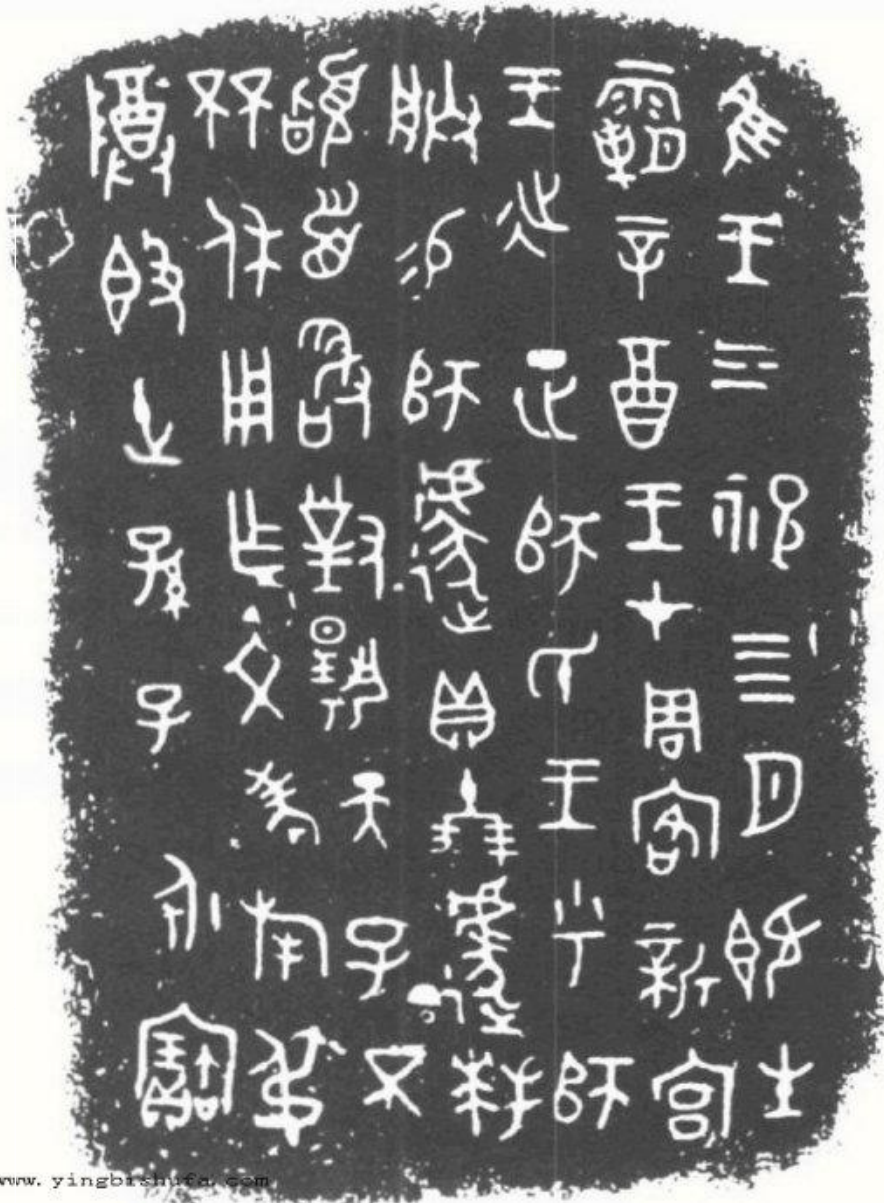 隹王三祀四月既生
霸辛酉王才周客新宮
王征正師氏王乎師
朕易師遽貝十朋遽拜
稽首敢對揚天子不
㔻休用乍文考旄叔
尊簋世孫子永寶
www.yingbishufa.com